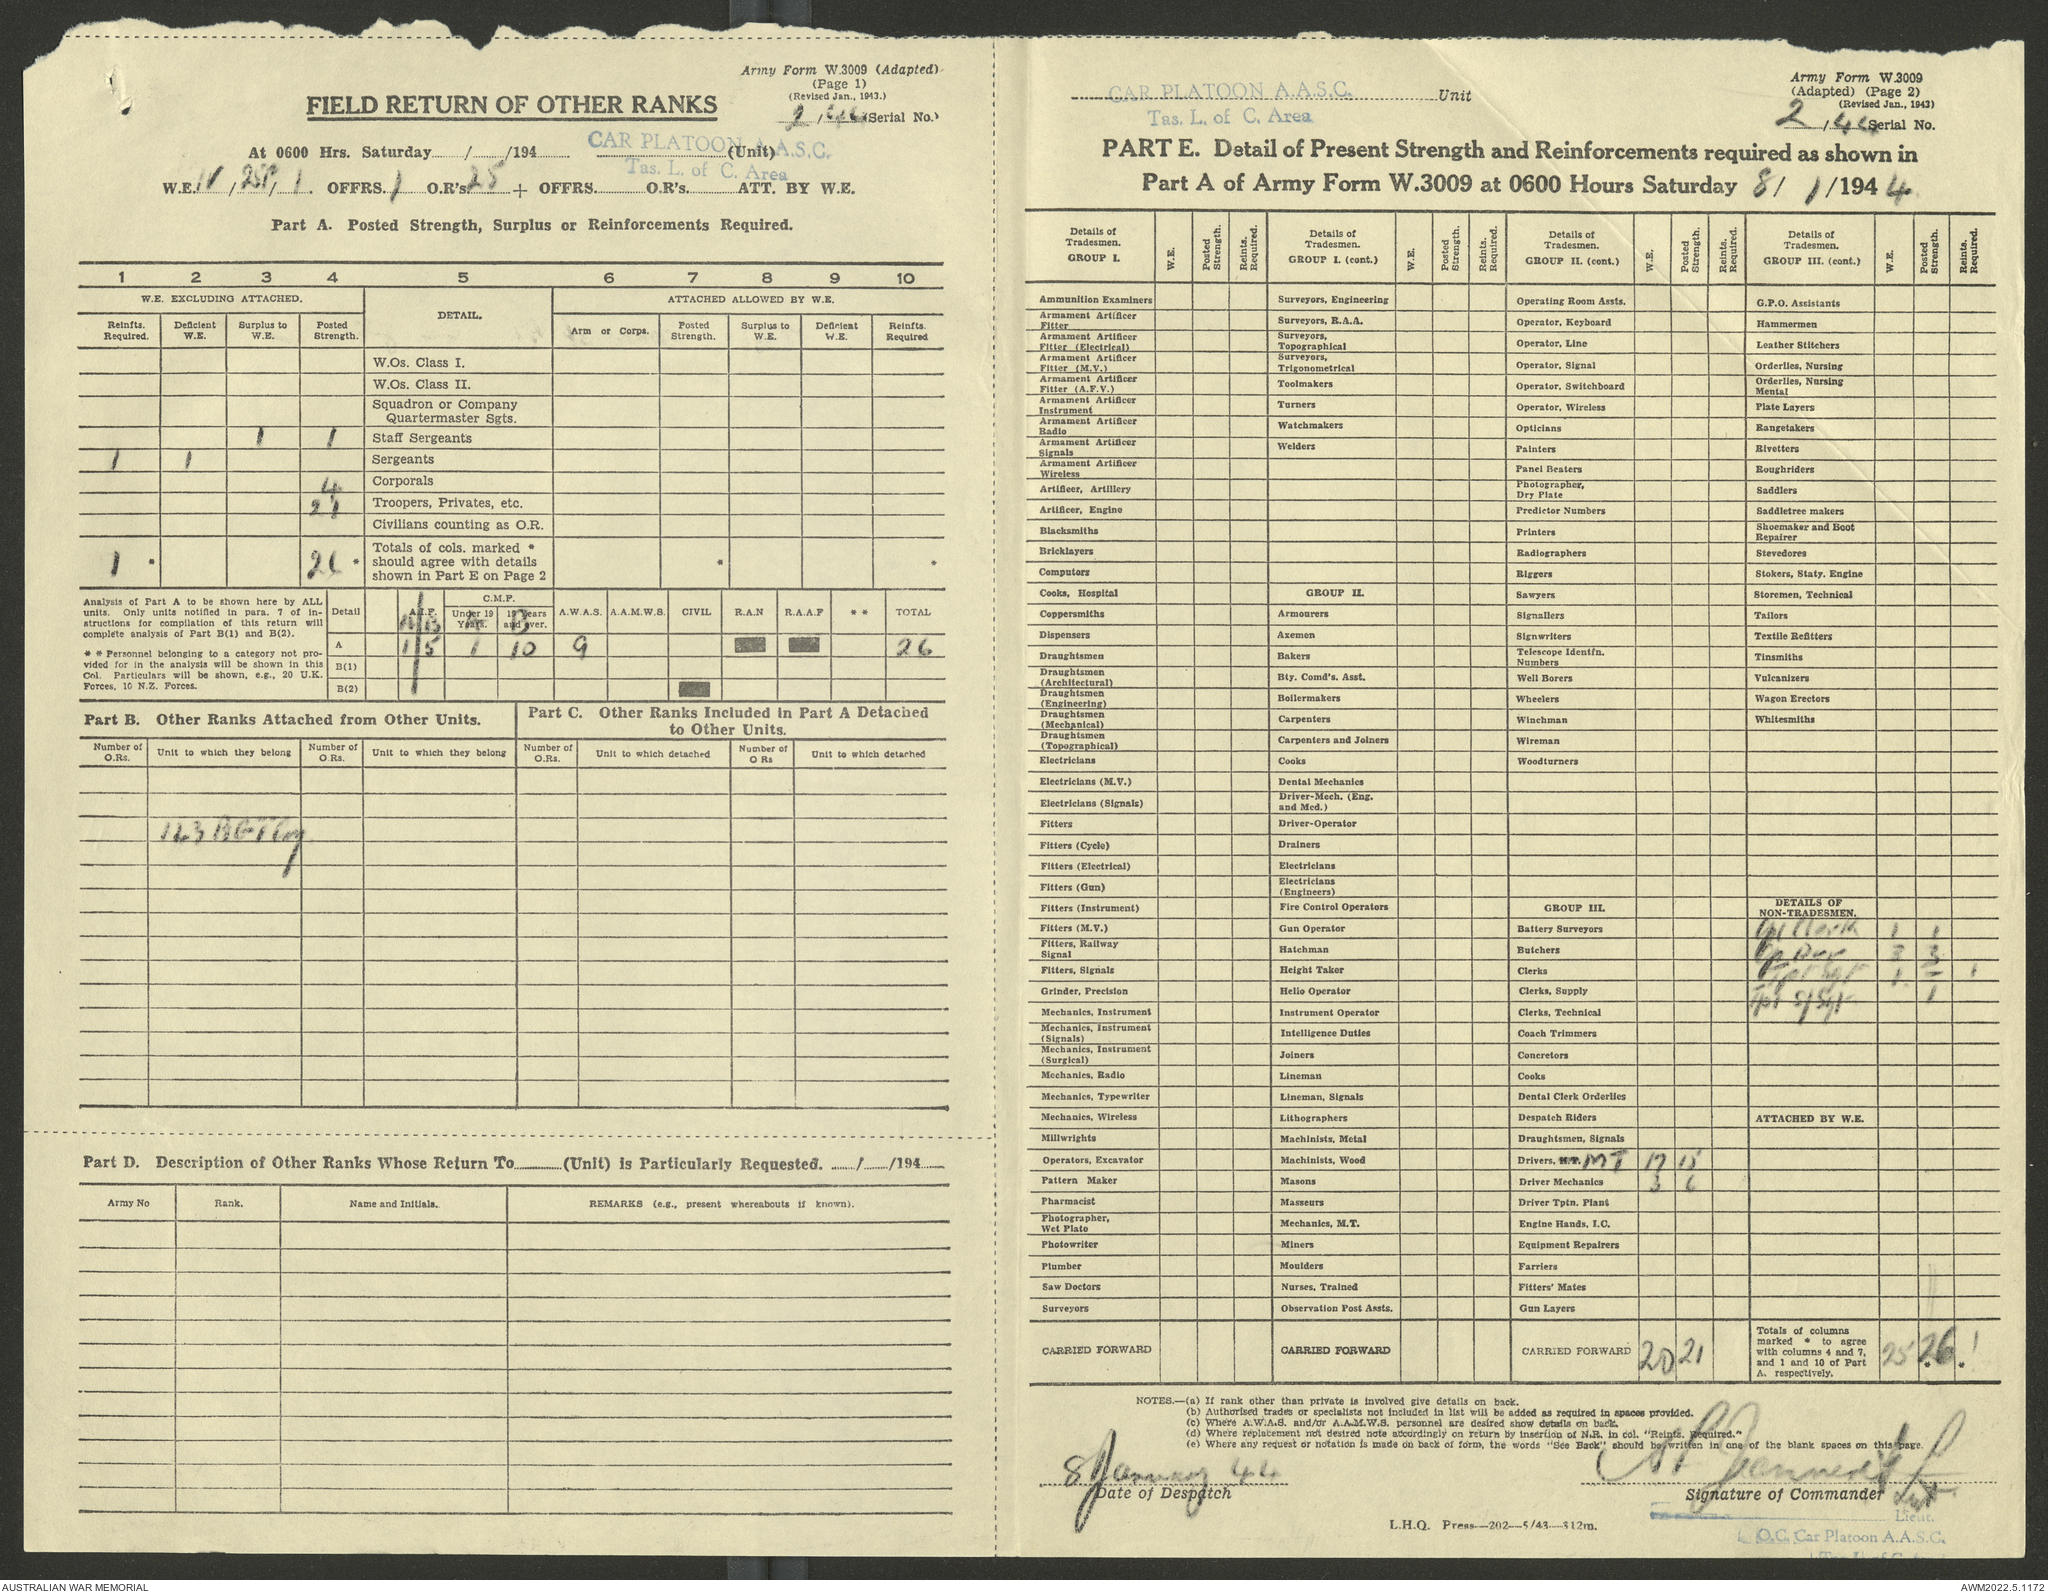 Army Form W.3009 (Adapted)
(Page 1)
(Revised Jan., 1943.)
FIELD RETURN OF OTHER RANKS
2/44 (Serial No.)
CAR PLATOON A.A.S.C.
At 0600 Hrs. Saturday / /194 (Unit)
Tas. L. of C. Area
W.E. OFFRS. 1 O.R's. 25 + OFFRS. O.R's. ATT. BY W.E.
Part A. Posted Strength, Surplus or Reinforcements Required.
1 2 3 4 5 6 7 8 9 10
W.E. EXCLUDING ATTACHED. DETAIL. ATTACHED ALLOWED BY W.E.
Reinfts. Required. Deficient W.E. Surplus to W.E. Posted Strength. Arm or Corps. Posted Strength. Surplus to W.E. Deficient W.E. Reinfts. Required
W.Os. Class I.
W.Os. Class II.
Squadron or Company
Quartermaster Sgts.
1 1 Staff Sergeants
1 1 Sergeants
4 Corporals
21 Troopers, Privates, etc.
Civilians counting as O.R.
1 * 26 * Totals of cols. marked *
should agree with details * *
shown in Part E on Page 2
Analysis of Part A to be shown here by ALL
units. Only units notified in para. 7 of in-
structions for compilation of this return will
complete analysis of Part B(1) and B(2).
* * Personnel belonging to a category not pro-
vided for in the analysis will be shown in this
Col. Particulars will be shown, e.g., 20 U.K.
Forces, 10 N.Z. Forces.
Detail A.I.F. C.M.F. Under 19 Years. 19 years and over. A.W.A.S. A.A.M.W.S. CIVIL R.A.N R.A.A.F * * TOTAL
A B A B
A 1 5 1 10 9 26
B(1)
B(2)
Part B. Other Ranks Attached from Other Units.
Number of O.Rs. Unit to which they belong Number of O.Rs. Unit to which they belong
123 B G T Coy
Part C. Other Ranks Included in Part A Detached
to Other Units.
Number of O.Rs. Unit to which detached Number of O Rs Unit to which detached
Part D. Description of Other Ranks Whose Return To (Unit) is Particularly Requested. / /194
Army No Rank. Name and Initials. REMARKS (e.g., present whereabouts if known).
Army Form W.3009
(Adapted) (Page 2)
(Revised Jan., 1943)
CAR PLATOON A.A.S.C. Unit
Tas. L. of C. Area
2/44 Serial No.
PART E. Detail of Present Strength and Reinforcements required as shown in
Part A of Army Form W.3009 at 0600 Hours Saturday 8/ 1/194 4
Details of Tradesmen. GROUP I. W.E. Posted Strength. Reints. Required.
Ammunition Examiners
Armament Artificer Fitter
Armament Artificer Fitter (Electrical)
Armament Artificer Fitter (M.V.)
Armament Artificer Fitter (A.F.V.)
Armament Artificer Instrument
Armament Artificer Radio
Armament Artificer Signals
Armament Artificer Wireless
Artificer, Artillery
Artificer, Engine
Blacksmiths
Bricklayers
Computors
Cooks, Hospital
Coppersmiths
Dispensers
Draughtsmen
Draughtsmen (Architectural)
Draughtsmen (Engineering)
Draughtsmen (Mechanical)
Draughtsmen (Topographical)
Electricians
Electricians (M.V.)
Electricians (Signals)
Fitters
Fitters (Cycle)
Fitters (Electrical)
Fitters (Gun)
Fitters (Instrument)
Fitters (M.V.)
Fitters, Railway Signal
Fitters, Signals
Grinder, Precision
Mechanics, Instrument
Mechanics, Instrument (Signals)
Mechanics, Instrument (Surgical)
Mechanics, Radio
Mechanics, Typewriter
Mechanics, Wireless
Millwrights
Operators, Excavator
Pattern Maker
Pharmacist
Photographer, Wet Plato
Photowriter
Plumber
Saw Doctors
Surveyors
CARRIED FORWARD
Details of Tradesmen. GROUP I. (cont.) W.E. Posted Strength. Reints. Required.
Surveyors, Engineering
Surveyors, R.A.A.
Surveyors, Topographical
Surveyors, Trigonometrical
Toolmakers
Turners
Watchmakers
Welders
GROUP II.
Armourers
Axemen
Bakers
Bty. Comd's. Asst.
Boilermakers
Carpenters
Carpenters and Joiners
Cooks
Dental Mechanics
Driver-Mech. (Eng. and Med.)
Driver-Operator
Drainers
Electricians
Electricians (Engineers)
Fire Control Operators
Gun Operator
Hatchman
Height Taker
Helio Operator
Instrument Operator
Intelligence Duties
Joiners
Lineman
Lineman, Signals
Lithographers
Machinists, Metal
Machinists, Wood
Masons
Masseurs
Mechanics, M.T.
Miners
Moulders
Nurses, Trained
Observation Post Assts.
CARRIED FORWARD
Details of Tradesmen. GROUP II. (cont.) W.E. Posted Strength. Reints. Required.
Operating Room Assts.
Operator, Keyboard
Operator, Line
Operator, Signal
Operator, Switchboard
Operator, Wireless
Opticians
Painters
Panel Beaters
Photographer, Dry Plate
Predictor Numbers
Printers
Radiographers
Riggers
Sawyers
Signallers
Signwriters
Telescope Identfn. Numbers
Well Borers
Wheelers
Winchman
Wireman
Woodturners
GROUP III.
Battery Surveyors
Butchers
Clerks
Clerks, Supply
Clerks, Technical
Coach Trimmers
Concretors
Cooks
Dental Clerk Orderlies
Despatch Riders
Draughtsmen, Signals
Drivers, H.T. MT 17 15
Driver Mechanics 3 6
Driver Tptn. Plant
Engine Hands, I.C.
Equipment Repairers
Farriers
Fitters' Mates
Gun Layers
CARRIED FORWARD 20 21
Details of Tradesmen. GROUP III. (cont.) W.E. Posted Strength. Reints. Required.
G.P.O. Assistants
Hammermen
Leather Stitchers
Orderlies, Nursing
Orderlies, Nursing Mental
Plate Layers
Rangetakers
Rivetters
Roughriders
Saddlers
Saddletree makers
Shoemaker and Boot Repairer
Stevedores
Stokers, Staty. Engine
Storemen, Technical
Tailors
Textile Refitters
Tinsmiths
Vulcanizers
Wagon Erectors
Whitesmiths
DETAILS OF NON-TRADESMEN.
Cpl Clerk 1 1
3 3
Tpt Sgt 1 – 1
Tpt S/Sgt 1
ATTACHED BY W.E.
Totals of columns
marked * to agree
with columns 4 and 7,
and 1 and 10 of Part
A. respectively. 25 26 * 1 *
NOTES.—(a) If rank other than private is involved give details on back.
(b) Authorised trades or specialists not included in list will be added as required in spaces provided.
(c) Where A.W.A.S. and/or A.A.M.W.S. personnel are desired show details on back.
(d) Where replacement not desired note accordingly on return by insertion of N.R. in col. "Reints. Required."
(e) Where any request or notation is made on back of form, the words "See Back" should be written in one of the blank spaces on this page.
8 January 44
Date of Despatch
Lieut
Signature of Commander
Lieut.
L.H.Q. Press—202—5/43—312m.
O.C. Car Platoon A.A.S.C.
AUSTRALIAN WAR MEMORIAL
AWM2022.5.1172